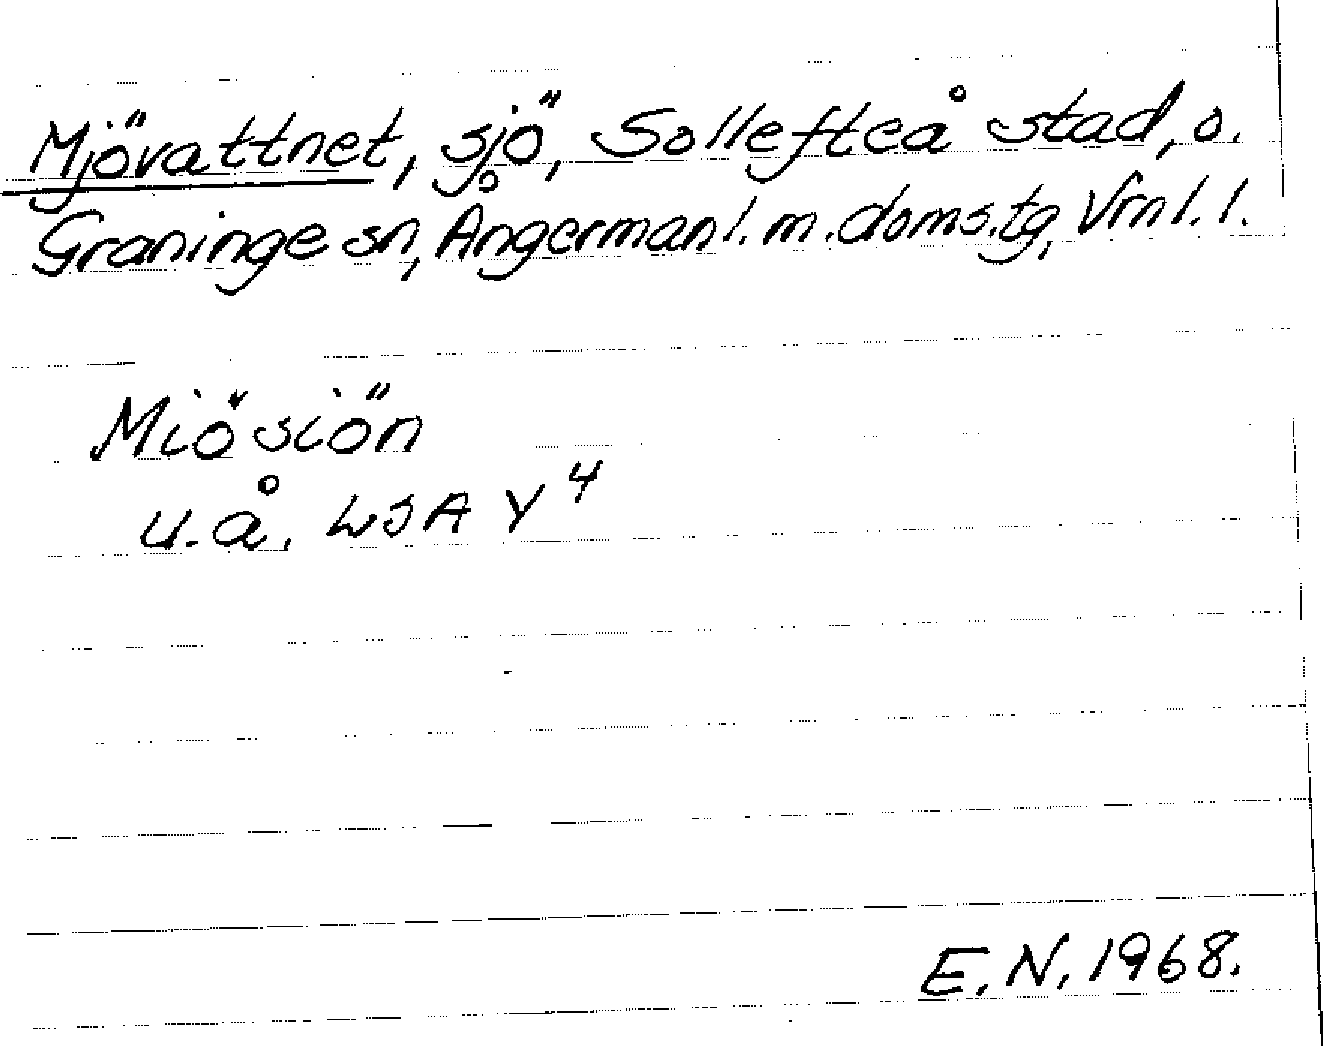 Mjövattnet, sjö, Sollefteå stad, o.
Graninge sn, Ångermanl. m. doms.tg, Vrnl. l.
Miösiön
u.å. LSA Y 4
E.N. 1968.